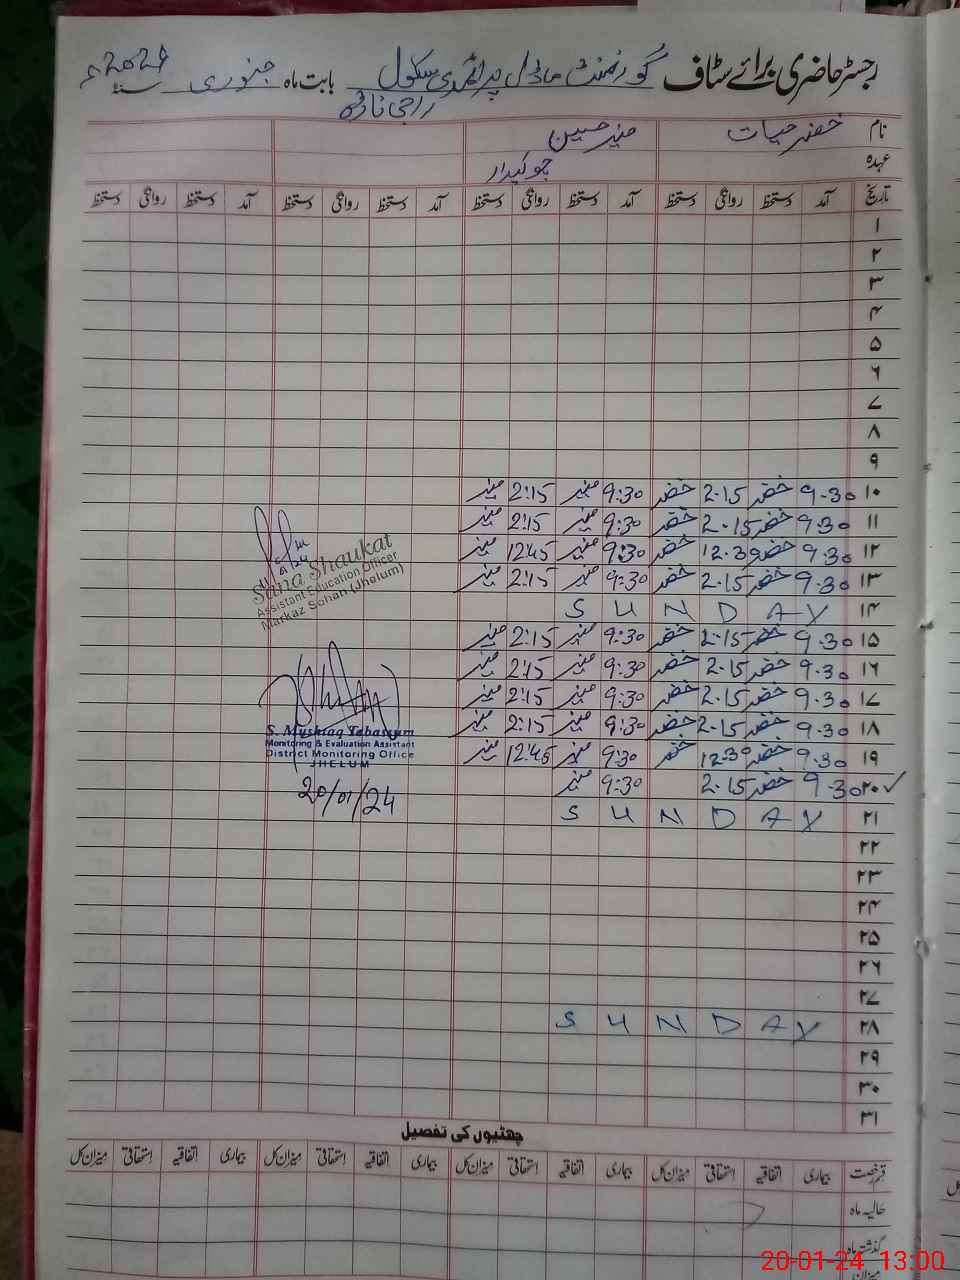 رجسٹر حاضری برائے سٹاف گورنمنٹ ماڈل پرائمری سکول بابت ماہ جنوری سنہ 2024ء
نام خضر حیات منیر حسین
عہدہ چوکیدار
تاریخ آمد دستخط روانگی دستخط آمد دستخط روانگی دستخط آمد دستخط روانگی دستخط آمد دستخط روانگی دستخط
۱
۲
۳
۴
۵
۶
۷
۸
۹
۱۰ 9.30 خضر 2.15 خضر 9:30 منیر 2:15 منیر
۱۱ 9.30 خضر 2.15 خضر 9:30 منیر 2:15 منیر
۱۲ 9.30 خضر 12.30 خضر 9:30 منیر 12:45 منیر
۱۳ 9.30 خضر 2.15 خضر 9:30 منیر 2:15 منیر
۱۴ SUNDAY
۱۵ 9.30 خضر 2.15 خضر 9:30 منیر 2:15 منیر
۱۶ 9.30 خضر 2.15 خضر 9:30 منیر 2:15 منیر
۱۷ 9.30 خضر 2.15 خضر 9:30 منیر 2:15 منیر
۱۸ 9.30 خضر 2.15 خضر 9:30 منیر 2:15 منیر
۱۹ 9.30 خضر 12.30 خضر 9:30 منیر 12:45 منیر
۲۰ 9.30 خضر 2.15 9:30 منیر
۲۱ SUNDAY
۲۲
۲۳
۲۴
۲۵
۲۶
۲۷
۲۸ SUNDAY
۲۹
۳۰
۳۱
Sana Shaukat
Assistant Education Officer
Markaz Sohan (Jhelum)
S. Mushtaq Tabassum
Monitoring & Evaluation Assistant
District Monitoring Office
JHELUM
20/01/24
چھٹیوں کی تفصیل
قسم رخصت بیماری اتفاقیہ استحقاقی میزان کل بیماری اتفاقیہ استحقاقی میزان کل بیماری اتفاقیہ استحقاقی میزان کل بیماری اتفاقیہ استحقاقی میزان کل
حالیہ ماہ
گذشتہ ماہ
میزان
20-01-24 13:00